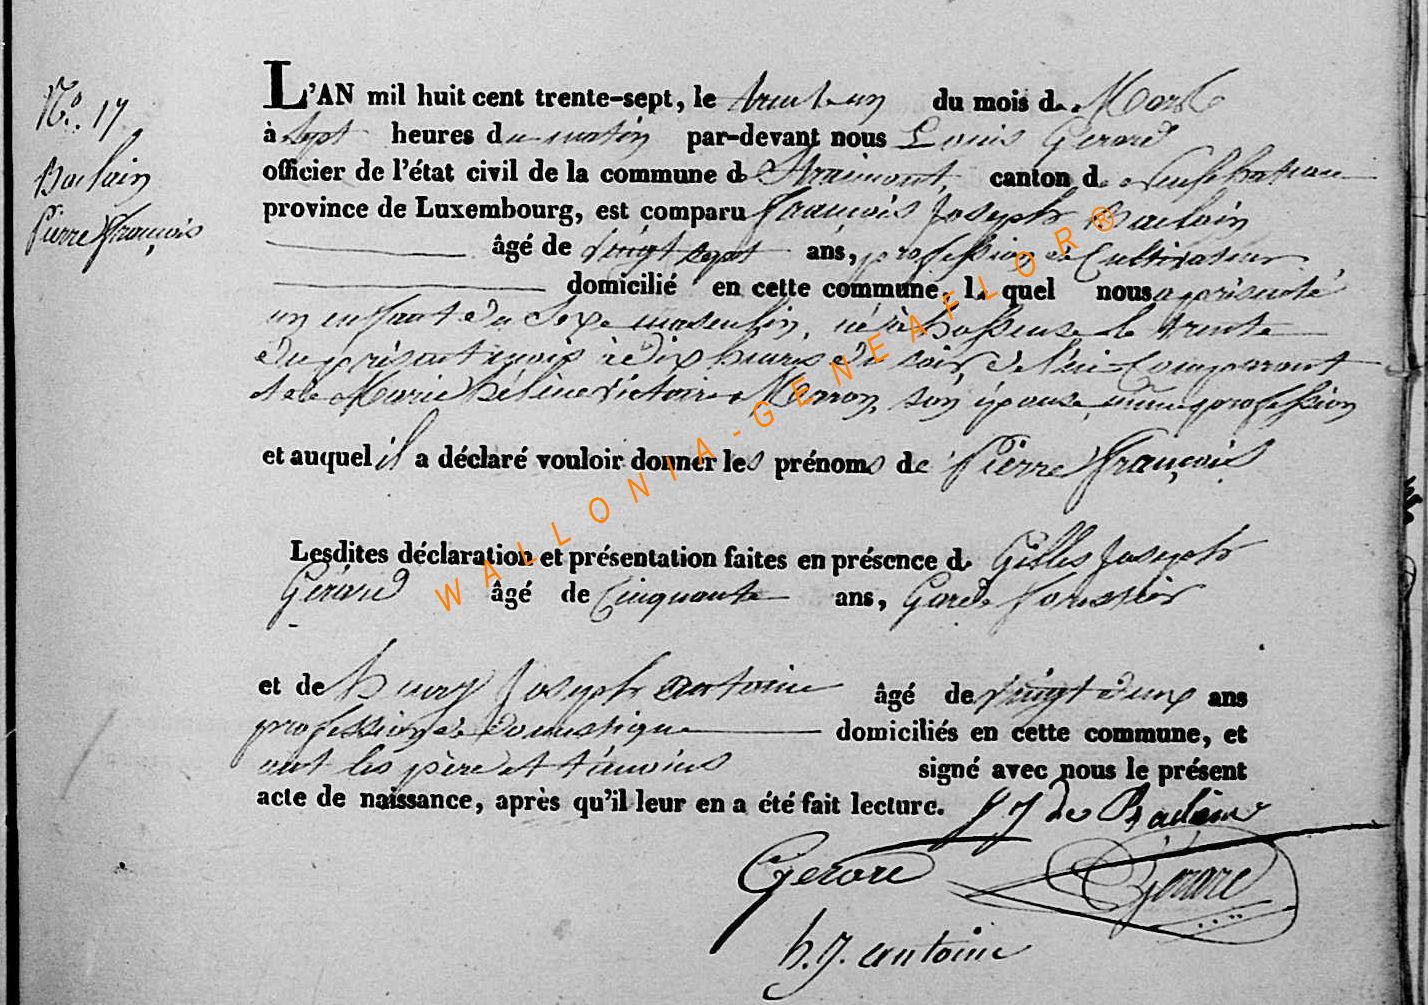 N°. 17
Baclain
Pierre François
L'AN mil huit cent trente-sept, le trente un du mois de Mars
à Sept heures du matin par-devant nous Louis Gerard
officier de l'état civil de la commune de Straimont, canton de Neufchateau
province de Luxembourg, est comparu François Joseph Baclain
âgé de vingt sept ans, profession de Cultivateur
domicilié en cette commune, lequel nous a présenté
un enfant du Sexe masculin, né à le trente
du présent mois à dix heures du soir de lui Comparant
et de Marie Hélène Victoire son épouse profession
et auquel il a déclaré vouloir donner les prénoms de Pierre François
Lesdites déclaration et présentation faites en présence de Gilles Joseph
Gérard âgé de Cinquante ans, Garde forestier
et de henry Joseph antoine âgé de vingt deux ans
profession de domestique domiciliés en cette commune, et
ont les père et témoins signé avec nous le présent
acte de naissance, après qu'il leur en a été fait lecture.
Gerard Gerard
h. J. antoine
WALLONIA-GENEAFLOR®